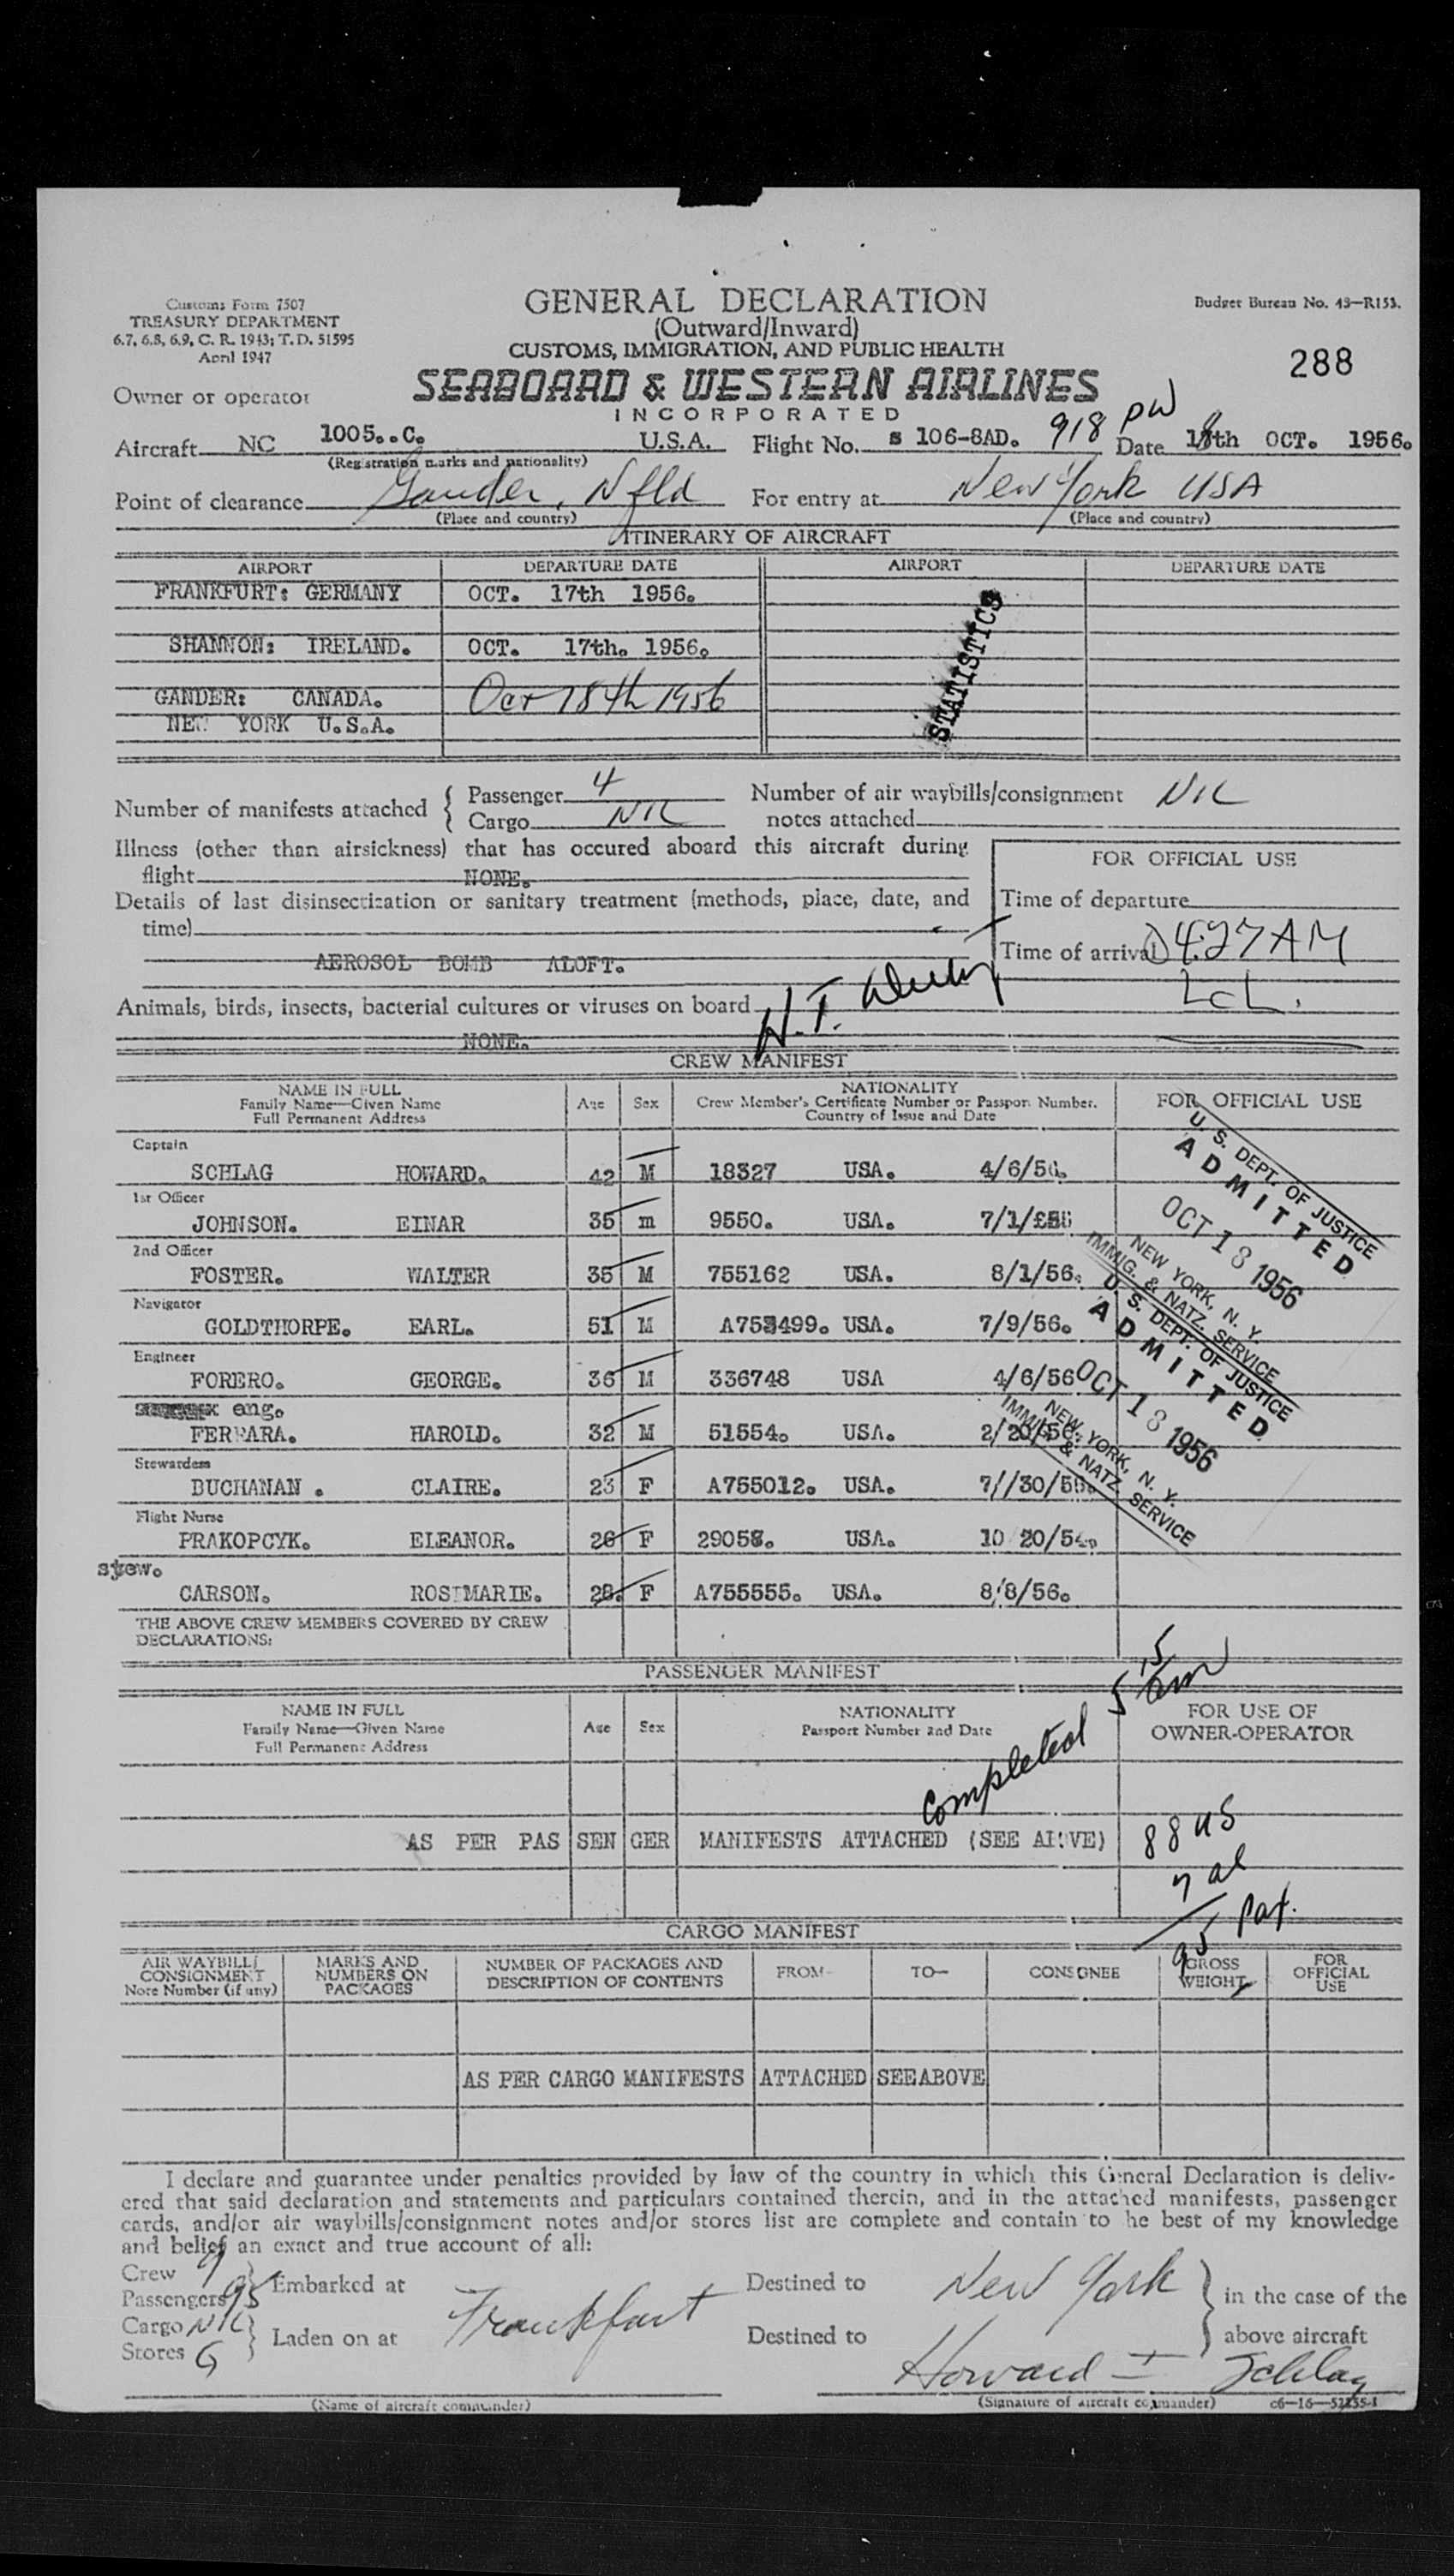 Customs Form 7507
TREASURY DEPARTMENT
6.7, 6.8, 6.9, C. R. 1943; T. D. 51595
April 1947
GENERAL DECLARATION
(Outward/Inward)
CUSTOMS, IMMIGRATION, AND PUBLIC HEALTH
Budget Bureau No. 43—R153.
288
Owner or operator
SEABOARD & WESTERN AIRLINES
INCORPORATED
Aircraft NC 1005..C. U.S.A. Flight No. s 106-8AD. 918 PW Date 18th OCT. 1956.
(Registration marks and nationality)
Point of clearance Gander, Nfld For entry at New York USA
(Place and country) (Place and country)
ITINERARY OF AIRCRAFT
AIRPORT DEPARTURE DATE AIRPORT DEPARTURE DATE
FRANKFURT: GERMANY OCT. 17th 1956.
SHANNON: IRELAND. OCT. 17th. 1956.
GANDER: CANADA. Oct 18th 1956
NEW YORK U.S.A.
STATISTICS
Number of manifests attached { Passenger 4 Number of air waybills/consignment NIL
Cargo NIL notes attached
Illness (other than airsickness) that has occured aboard this aircraft during
flight NONE.
FOR OFFICIAL USE
Details of last disinsectization or sanitary treatment (methods, place, date, and
time)
Time of departure
AEROSOL BOMB ALOFT.
Time of arrival 4:27 AM
LCL.
Animals, birds, insects, bacterial cultures or viruses on board H. T.
NONE.
CREW MANIFEST
NAME IN FULL
Family Name—Given Name
Full Permanent Address
Age Sex
NATIONALITY
Crew Member's Certificate Number or Passport Number.
Country of Issue and Date
FOR OFFICIAL USE
Captain
SCHLAG HOWARD. 42 M 18327 USA. 4/6/56.
1st Officer
JOHNSON. EINAR 35 m 9550. USA. 7/1/
2nd Officer
FOSTER. WALTER 35 M 755162 USA. 8/1/56.
Navigator
GOLDTHORPE. EARL. 51 M A753499. USA. 7/9/56.
Engineer
FORERO. GEORGE. 36 M 336748 USA 4/6/56
eng.
FERRARA. HAROLD. 32 M 51554. USA. 2/20/56.
Stewardess
BUCHANAN . CLAIRE. 23 F A755012. USA. 7//30/56
Flight Nurse
PRAKOPCYK. ELEANOR. 26 F 29058. USA. 10 20/54.
stew.
CARSON. ROSEMARIE. 28. F A755555. USA. 8/8/56.
U. S. DEPT. OF JUSTICE
ADMITTED
OCT 18 1956
NEW YORK, N. Y.
IMMIG. & NATZ. SERVICE
U. S. DEPT. OF JUSTICE
ADMITTED
OCT 18 1956
NEW YORK, N. Y.
IMMIG. & NATZ. SERVICE
THE ABOVE CREW MEMBERS COVERED BY CREW
DECLARATIONS:
PASSENGER MANIFEST
NAME IN FULL
Family Name—Given Name
Full Permanent Address
Age Sex
NATIONALITY
Passport Number and Date
FOR USE OF
OWNER-OPERATOR
Completed 5 15 am
AS PER PAS SEN GER MANIFESTS ATTACHED (SEE ABOVE)
88 US
7 al
95 Pax.
CARGO MANIFEST
AIR WAYBILL/
CONSIGNMENT
Note Number (if any)
MARKS AND
NUMBERS ON
PACKAGES
NUMBER OF PACKAGES AND
DESCRIPTION OF CONTENTS
FROM— TO— CONSIGNEE
GROSS
WEIGHT
FOR
OFFICIAL
USE
AS PER CARGO MANIFESTS ATTACHED SEEABOVE
I declare and guarantee under penalties provided by law of the country in which this General Declaration is deliv-
ered that said declaration and statements and particulars contained therein, and in the attached manifests, passenger
cards, and/or air waybills/consignment notes and/or stores list are complete and contain to he best of my knowledge
and belief an exact and true account of all:
Crew 9
Passengers 95 } Embarked at Frankfurt Destined to New York } in the case of the
Cargo NIL
Stores G } Laden on at Destined to above aircraft
Howard I Schlag
(Name of aircraft commander) (Signature of aircraft commander) c6—16—52255-1